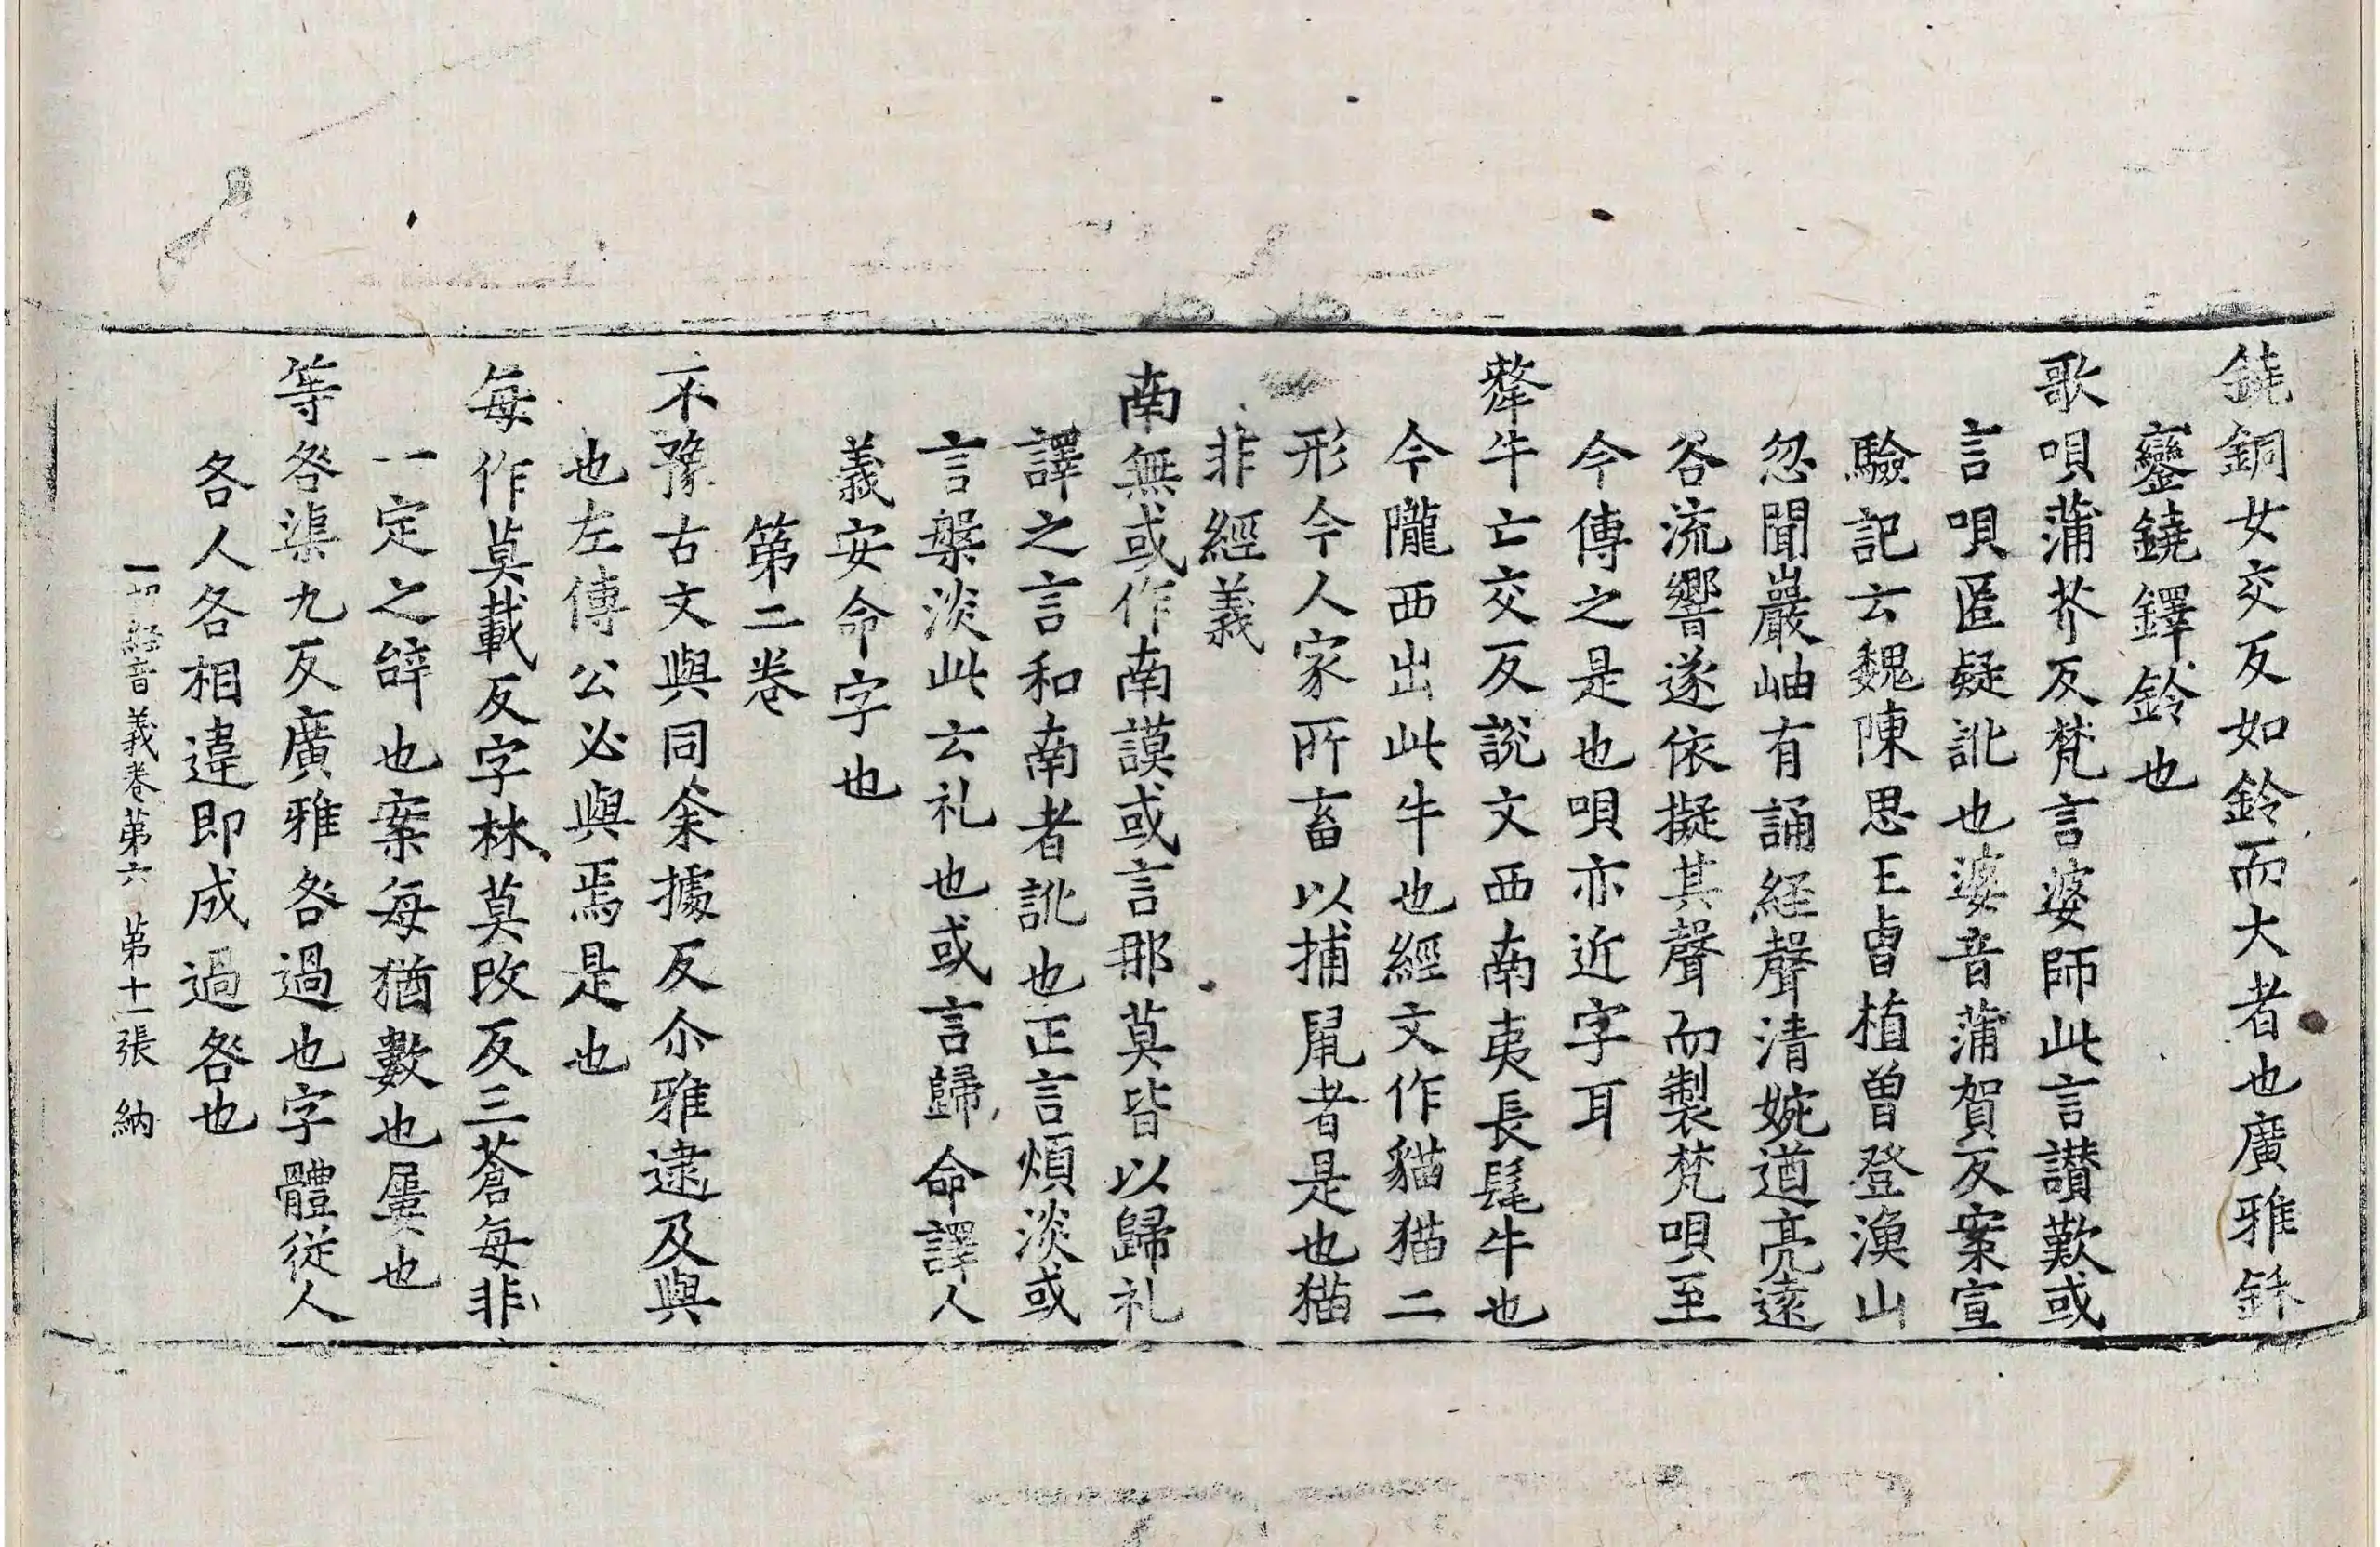 鐃銅女交反如鈴而大者也廣雅鉌
鑾鐃鐸鈴也
歌唄蒲芥反梵言婆師此言讃歎或
言唄匿疑訛也婆音蒲賀反案宣
驗記云魏陳思王曺植曽登漁山
忽聞巖岫有誦経聲清婉遒亮遠
谷流響遂依擬其聲而製梵唄至
今傳之是也唄亦近字耳
犛牛亡交反說文西南夷長髦牛也
今隴西出此牛也經文作貓猫二
形今人家所畜以捕鼠者是也猫
非經義
南無或作南謨或言那莫皆以歸礼
譯之言和南者訛也正言煩淡或
言槃淡此云礼也或言歸命譯人
義安命字也
第二卷
不豫古文與同余據反尒雅逮及與
也左傳公必與焉是也
每作莫載反字林莫改反三蒼每非
一定之辝也案每猶數也屢也
等咎渠九反廣雅咎過也字體從人
各人各相違即成過咎也
一切経音義卷第六　第十二張　納